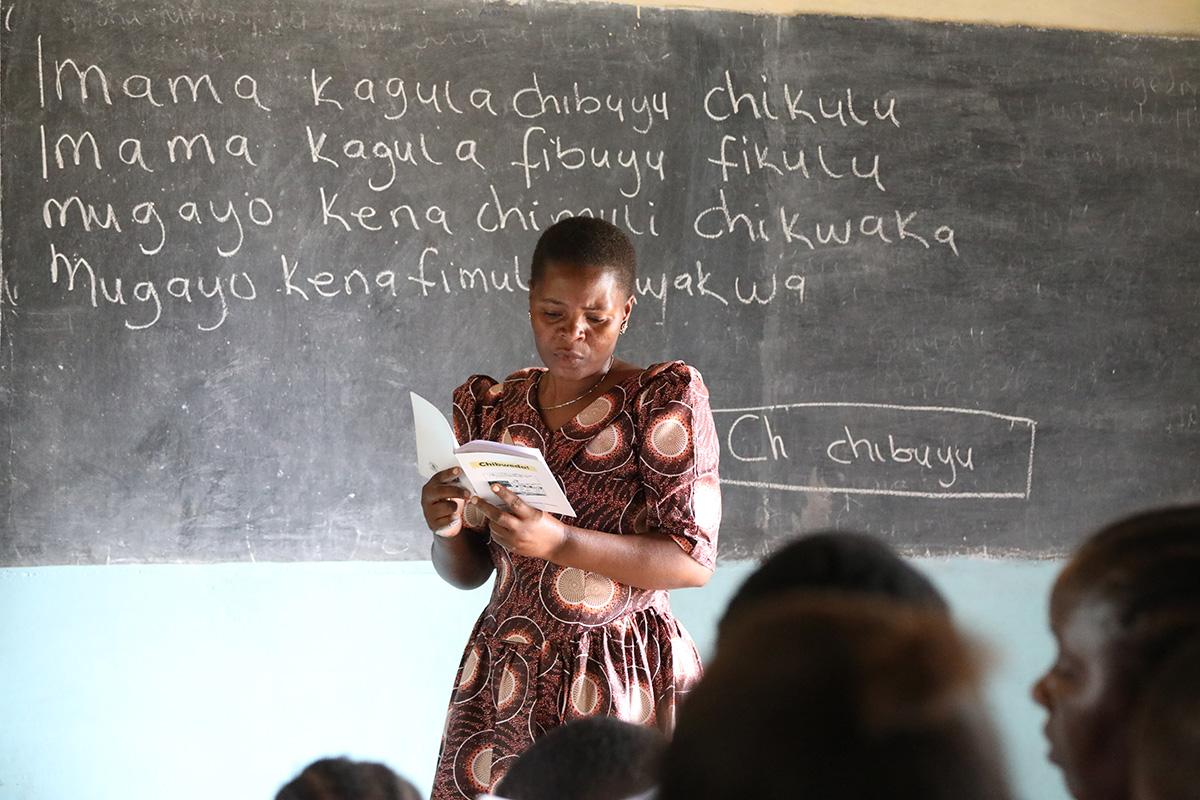 Imama kagula chibuyu chikulu
Imama kagula fibuyu fikulu
mugayo kena chimuli chikwaka
Mugayo kena fimul wyakwa
Ch chibuyu
Chibwedai